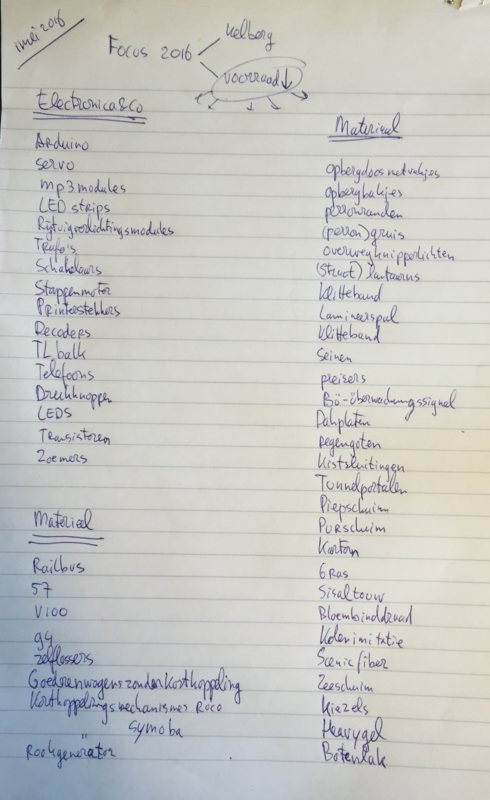 1 mei 2016
Focus 2016
Kelberg
voorraad ↓
Electronica & co
Arduino
servo
mp3 modules
LED strips
Rijtuigverlichtingsmodules
Trafo's
Schakelaars
Stappenmotor
Printerstekkers
Decoders
TL balk
Telefoons
Drukknoppen
LEDS
Transistoren
Zoemers
Materieel
Railbus
57
V100
94
zelflossers
Goederenwagens zonder Kortkoppeling
Kortkoppelings mechanismes Roco
" Symoba
Rookgenerator
Materiaal
opbergdoos met vakjes
opbergbakjes
perronranden
(perron) gruis
overweg knipperlichten
(straat) lantaarns
Klitteband
Lamineerspul
Klitteband
Seinen
preisers
Bü-überwachungssignal
Dakplaten
regengoten
Kistsluitingen
Tunnelportalen
Piepschuim
Purschuim
Karton
Gras
Sisaltouw
Bloembinddraad
Kolenimitatie
Scenic fiber
Zeeschuim
Kiezels
Heavygel
Botenlak